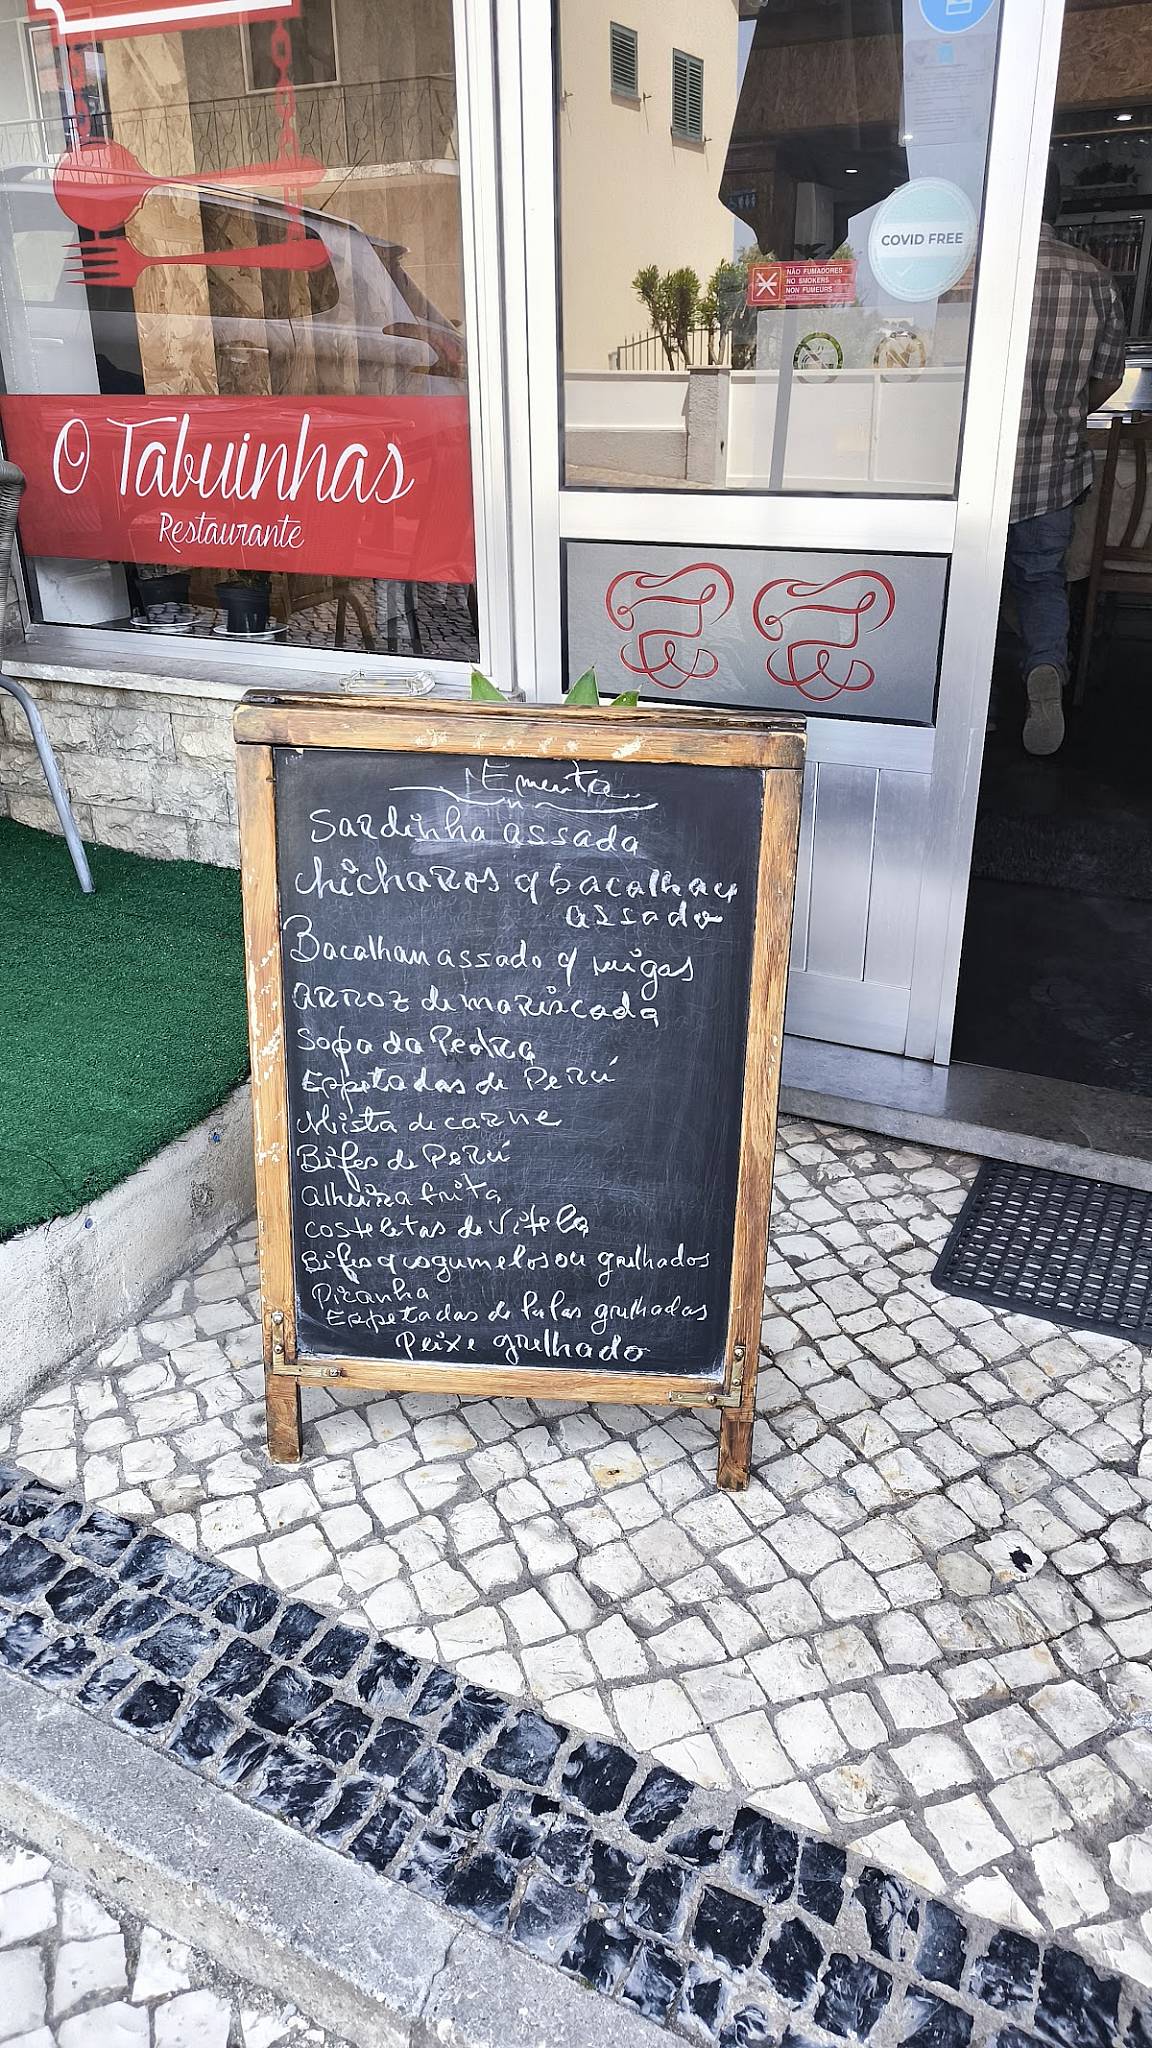 O Tabuinhas
Restaurante
COVID FREE
NÃO FUMADORES
NO SMOKERS
NON FUMEURS
Ementa
Sardinha assada
chicharos c/ bacalhau
assado
Bacalhau assado c/ migas
arroz de mariscada
Sopa da Pedra
Espetadas de Perú
Mista de carne
Bifes de Perú
alheira frita
costeletas de Vitela
Bifes c/ cogumelos ou grelhados
Piranha
Espetadas de lulas grelhadas
Peixe grelhado